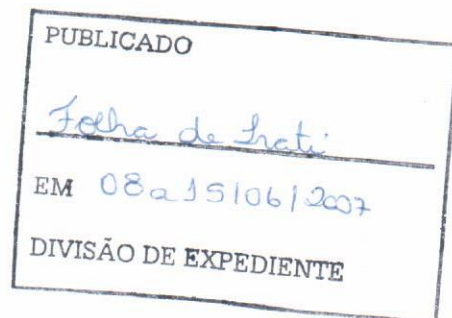 PUBLICADO
Folha de Irati
EM 08 a 15/06/2007
DIVISÃO DE EXPEDIENTE